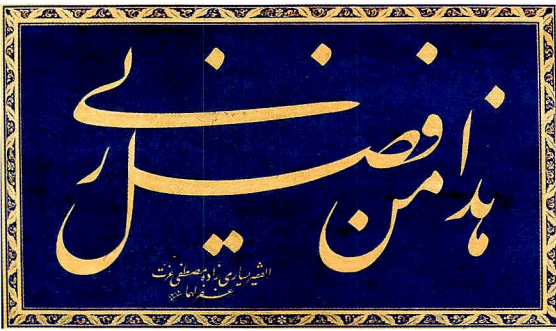 هذا من فضل ربي
الفقير يساري زاده مصطفى عزت
غفر لهما